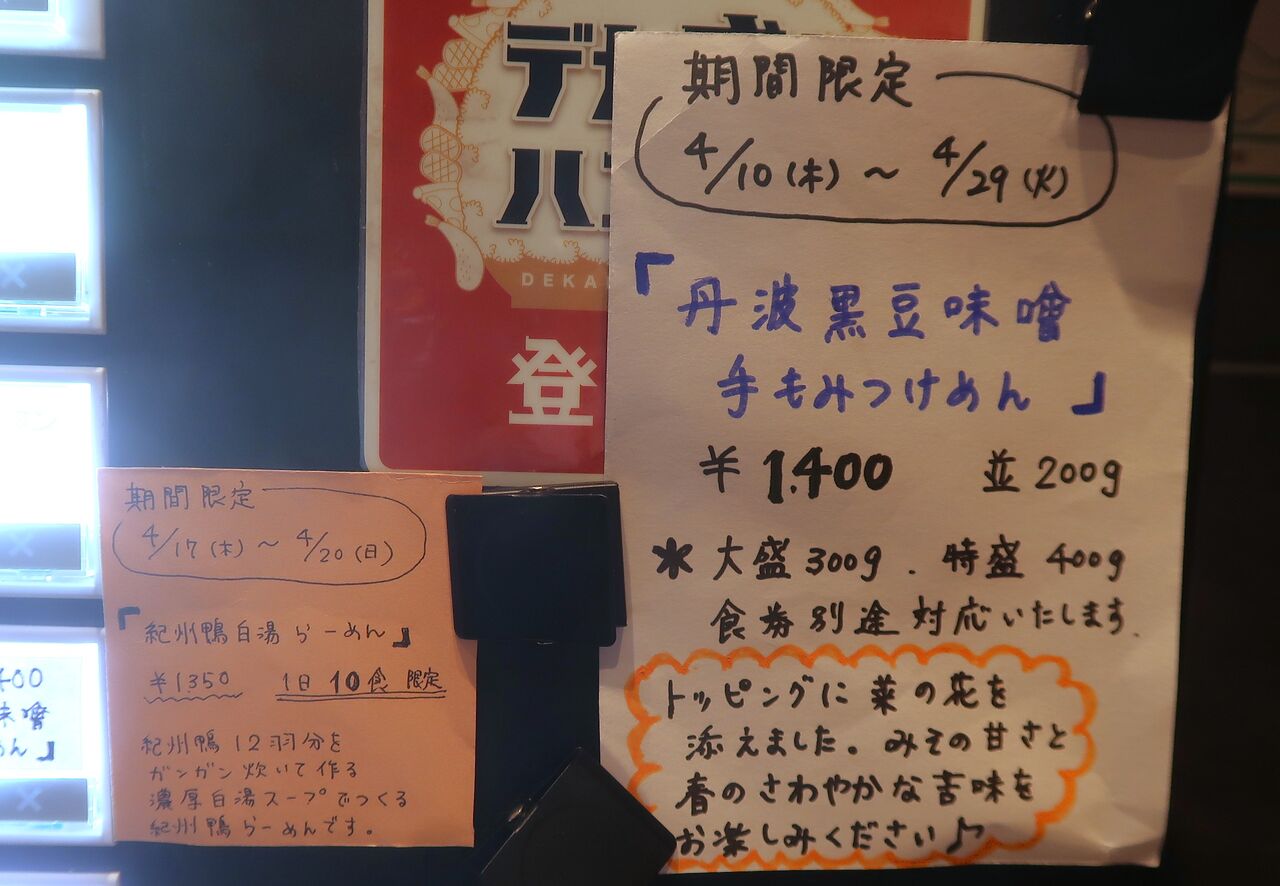 期間限定
4/10(木)～4/29(火)
『丹波黒豆味噌
手もみつけめん』
¥1.400 並200g
＊大盛300g.特盛400g
食券別途対応いたします.
トッピングに菜の花を
添えました。みその甘さと
春のさわやかな苦味を
お楽しみください♪
期間限定
4/17(木)～4/20(日)
『紀州鴨白湯らーめん』
¥1350 1日10食限定
紀州鴨12羽分を
ガンガン炊いて作る
濃厚白湯スープでつくる
紀州鴨らーめんです。
デカ
ハン
DEKA
登
400
味噌
めん』